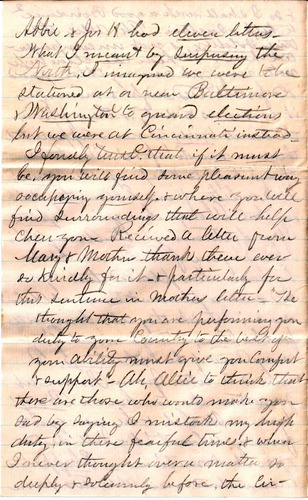 Abbie & Jos H had eleven letters -
What I meant by surprising the
North, I imagined we were to be
stationed at or near Baltimore
& Washington to guard elections
but we were at Cincinnati instead
I fondly trust that if it must
be, you will find some pleasant way
occupying yourself, & where you will
find surroundings that will help
cheer you - Received a letter from
Mary & Mother thank them ever
so kindly for it - & particularly for
that sentence in Mothers letter - The
thought that you are performing your
duty to your Country to the best of
your ability must give you Comfort
& support - Ah, Alice to think that
there are those who would make you
sad by saying I mistook my high
duty, in these fearful times, & when
I never thought over a matter so
deeply & solemnly before, the Cir-